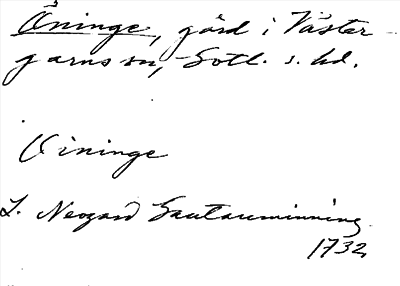 Öninge, gård i Väster-
garns sn, Gotl. s. hd.
Oininge
L. Neogard Gautauminning
1732